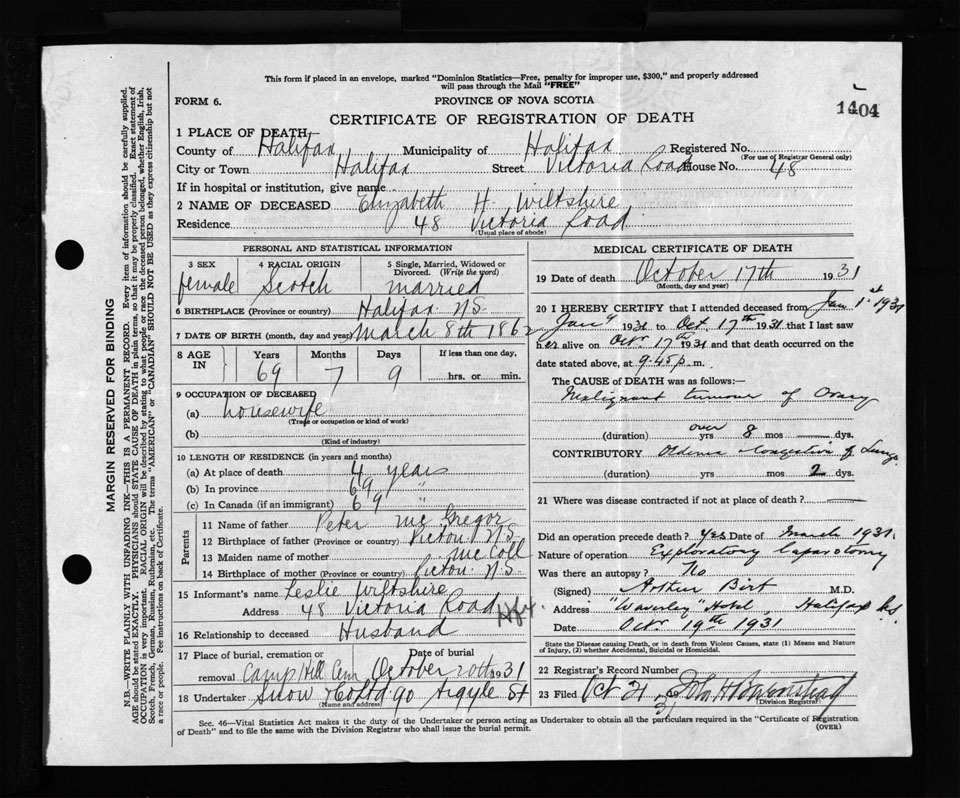 This form if placed in an envelope, marked "Dominion Statistics—Free, penalty for improper use, $300," and properly addressed
will pass through the Mail "FREE"
FORM 6.
PROVINCE OF NOVA SCOTIA
1404
CERTIFICATE OF REGISTRATION OF DEATH
1 PLACE OF DEATH
County of Halifax Municipality of Halifax Registered No.
(For use of Registrar General only)
City or Town Halifax Street Victoria Road House No. 48
If in hospital or institution, give name
2 NAME OF DECEASED Elizabeth H. Wiltshire
Residence 48 Victoria Road
(Usual place of abode)
PERSONAL AND STATISTICAL INFORMATION
3 SEX 4 RACIAL ORIGIN 5 Single, Married, Widowed or
Divorced. (Write the word)
female Scotch married
6 BIRTHPLACE (Province or country) Halifax N.S.
7 DATE OF BIRTH (month, day and year) March 8th 1862
8 AGE IN Years Months Days If less than one day,
69 7 9 hrs. or min.
9 OCCUPATION OF DECEASED
(a) housewife
(Trade or occupation or kind of work)
(b)
(Kind of industry)
10 LENGTH OF RESIDENCE (in years and months)
(a) At place of death 4 years
(b) In province 69 "
(c) In Canada (if an immigrant) 69 "
Parents
11 Name of father Peter McGregor
12 Birthplace of father (Province or country) Pictou N.S.
13 Maiden name of mother McColl
14 Birthplace of mother (Province or country) Pictou N.S.
15 Informant's name Leslie Wiltshire
Address 48 Victoria Road Hfx.
16 Relationship to deceased Husband
17 Place of burial, cremation or Date of burial
removal Camp Hill Cem October 20th 1931
18 Undertaker Snow & Co Ltd 90 Argyle St
(Name and address)
MEDICAL CERTIFICATE OF DEATH
19 Date of death October 17th 1931
(Month, day and year)
20 I HEREBY CERTIFY that I attended deceased from Jan 1st 1931
Jan 9 1931 to Oct. 17th 1931 that I last saw
her alive on Oct. 17th 1931 and that death occurred on the
date stated above, at 9.45 p. m.
The CAUSE of DEATH was as follows:—
Malignant tumour of Ovary
(duration) over yrs 8 mos — dys.
CONTRIBUTORY Oedema & congestion of Lungs
(duration) yrs mos 2 dys.
21 Where was disease contracted if not at place of death? —
Did an operation precede death? yes Date of March 1931.
Nature of operation Exploratory laparotomy
Was there an autopsy? No
(Signed) Arthur Birt M.D.
Address "Waverley" Hotel, Halifax N.S.
Date Octr 19th 1931
State the Disease causing Death, or in death from Violent Causes, state (1) Means and Nature
of Injury, (2) whether Accidental, Suicidal or Homicidal.
22 Registrar's Record Number
23 Filed Oct 21 31
(Division Registrar)
Sec. 46—Vital Statistics Act makes it the duty of the Undertaker or person acting as Undertaker to obtain all the particulars required in the "Certificate of Registration
of Death" and to file the same with the Division Registrar who shall issue the burial permit.
(OVER)
MARGIN RESERVED FOR BINDING
N.B.—WRITE PLAINLY WITH UNFADING INK—THIS IS A PERMANENT RECORD. Every item of information should be carefully supplied.
AGE should be stated EXACTLY. PHYSICIANS should STATE CAUSE OF DEATH in plain terms, so that it may be properly classified. Exact statement of
OCCUPATION is very important. RACIAL ORIGIN will be described by stating to what people or race the deceased person belonged, whether English, Irish,
Scotch, French, German, Russian, Ruthenian, etc. The terms "AMERICAN" or "CANADIAN" SHOULD NOT BE USED as they express citizenship but not
a race or people. See instructions on back of Certificate.